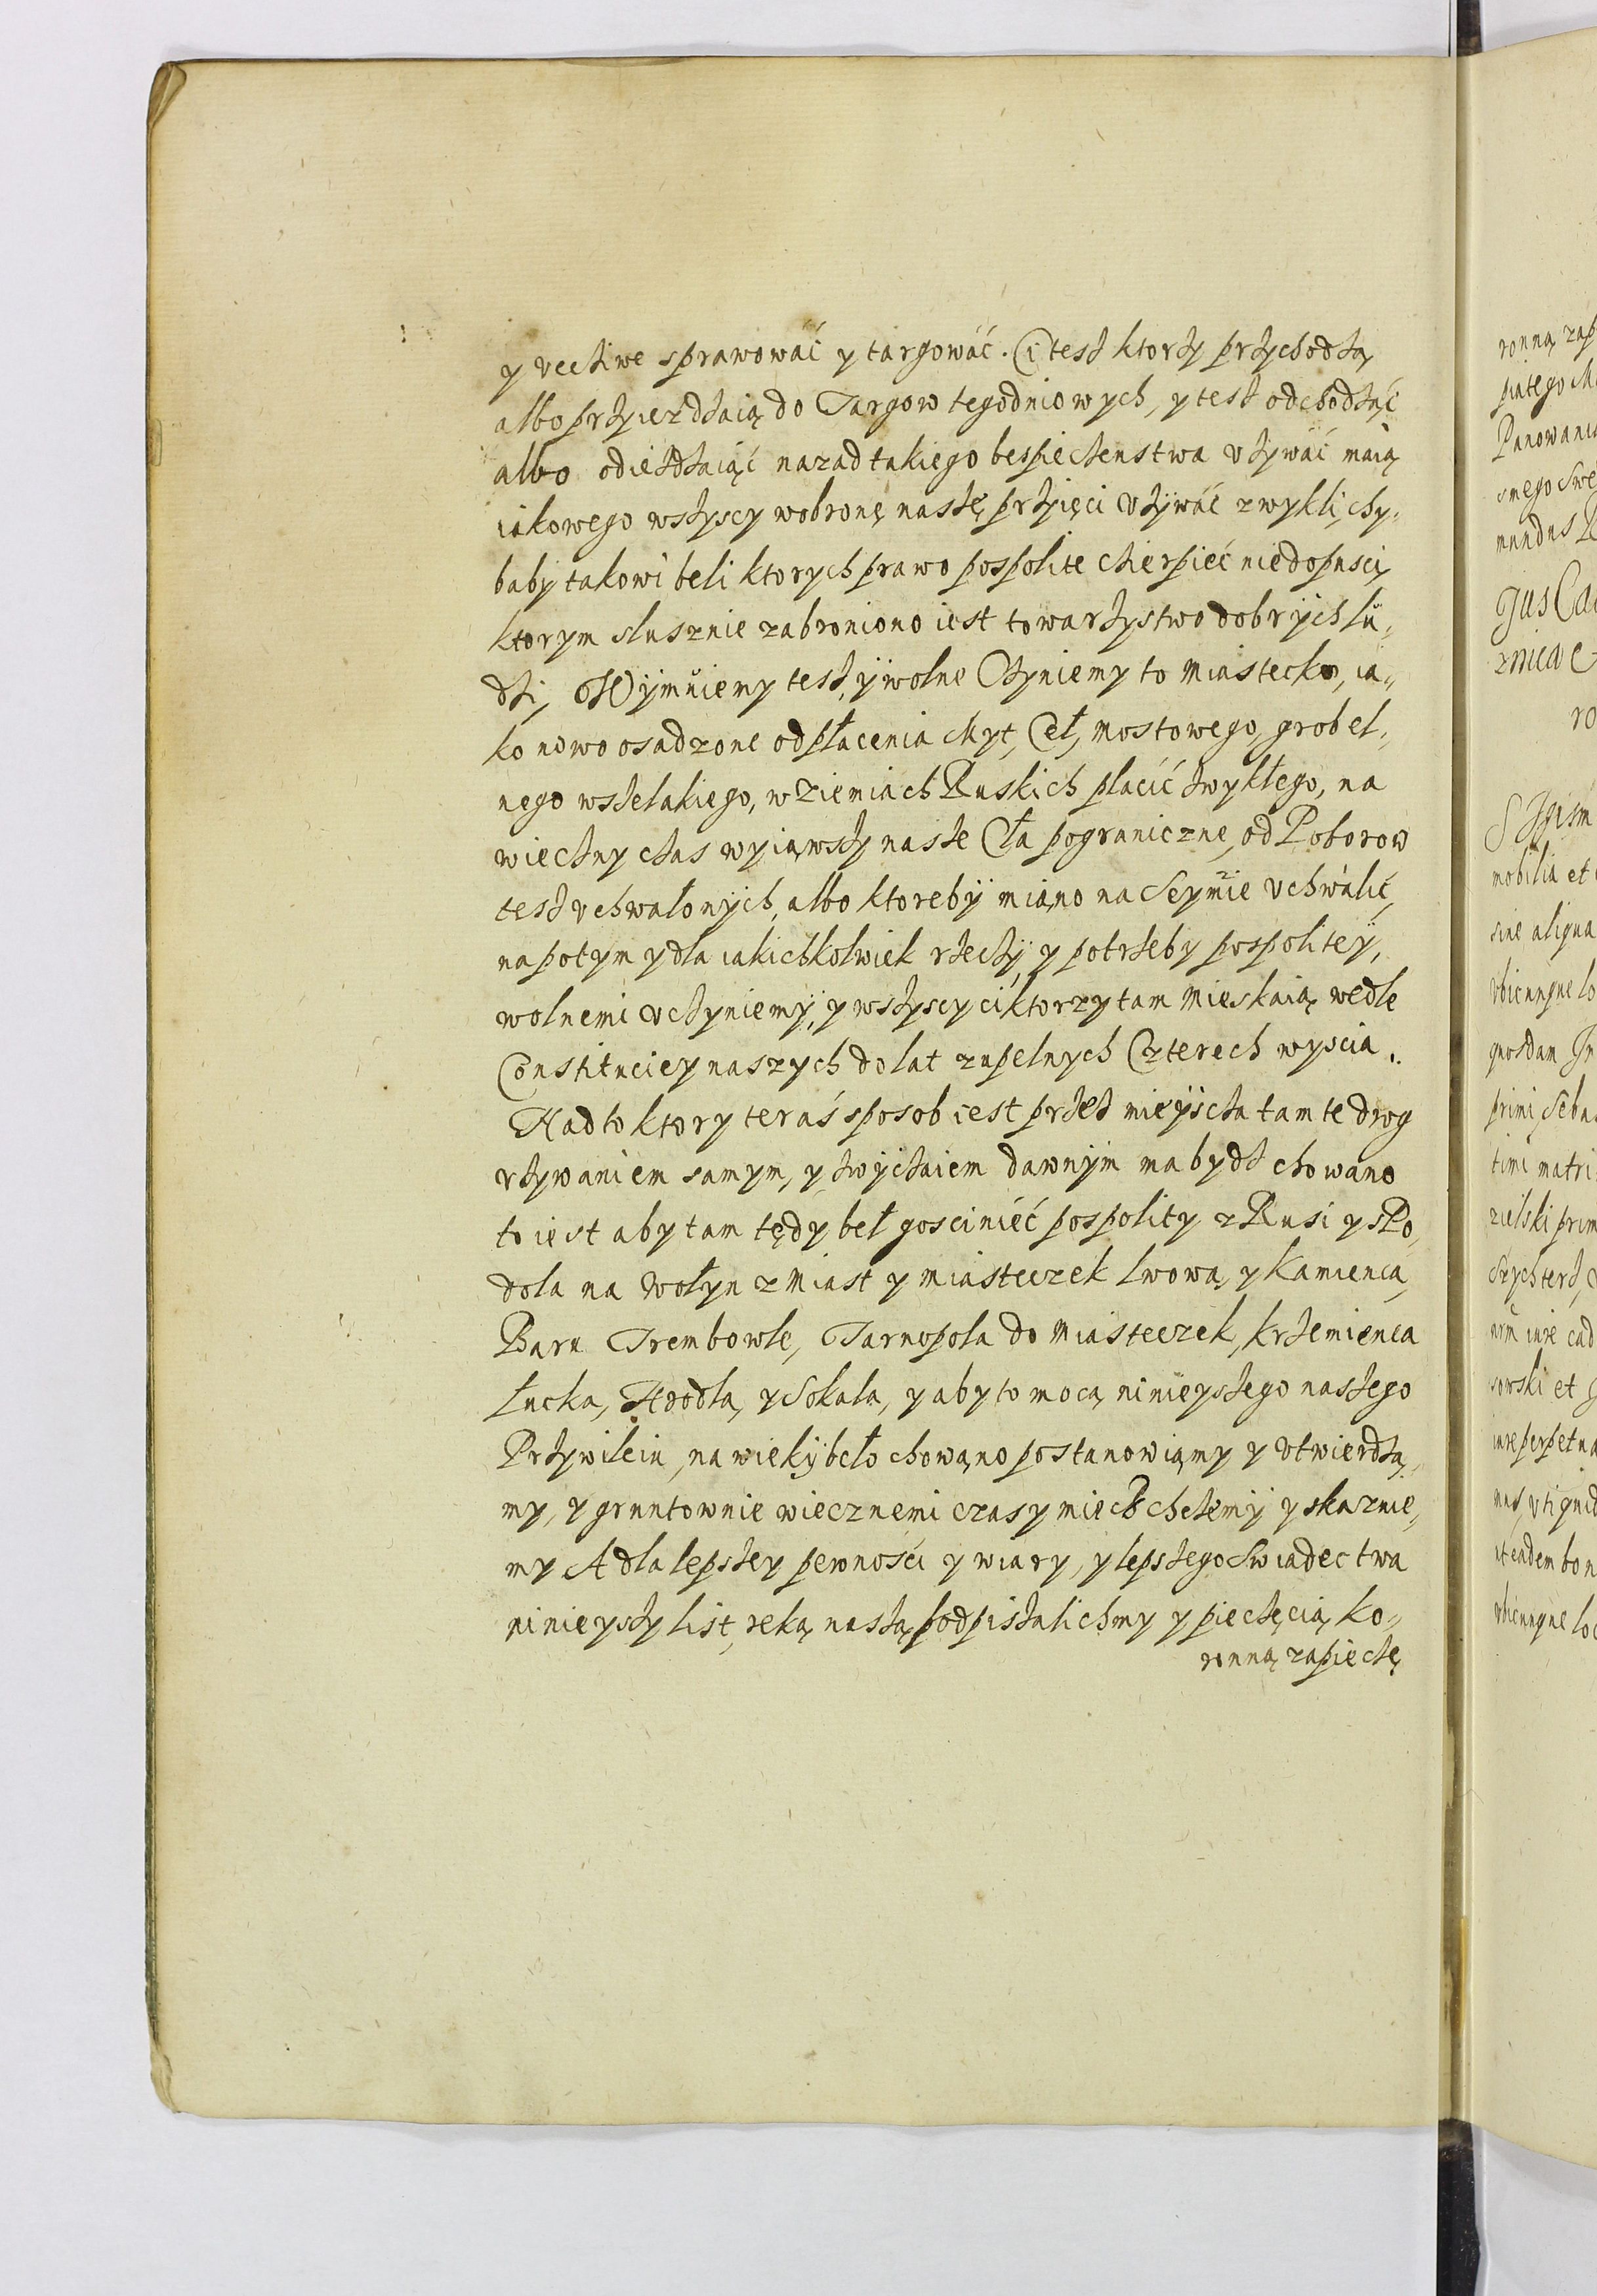 y ucżiwe sprawowáć y targowáć. Ci tesż ktorży prżychodżą
albo prżyiezdżaią do Targow tegodniowych, y tesż odchodżąć
albo odieżdżaiąć nazad takiego bespiecżenstwa użÿwáć maią
iakowego wsżyscy wobronę naszę prżyięci użÿwáć zwykli, chy„
baby takowi beli ktorych prawo pospolite cżierpieć niedopusci,
ktorym slusznie zabroniono iest towarżystwo dobrÿch lu„
dżi, Wÿmuiemy tesż, ÿ wolne Cżyniemy to Miastecko, ia„
ko nowo osadzone od płacenia Myt, Ceł, mostowego, grobel„
nego wsżelakiego, w Ziemiach Ruskich płacić żwykłego, na
wiecżny cżas wyiąwsży nasże Cła pograniczne, od Poborow
tesż uchwalonÿch, albo ktorebÿ miano na Seymie Uchwalić,
napotym y dla iakichkolwiek rżecżÿ, y potrżeby pospolitey,
wolnemi ucżyniemÿ, y wsżyscy ci ktorzy tam Mieskaią wedle
Constituciey naszych do lat zupelnych Czterech wyscia„
Nadto ktory teraś sposob iest prżeż mieÿscża tamte drog
używaniem samym, y żwÿcżaiem dawnÿm ma bydż chowano
to iest aby tam tędy beł gosciniéć pospolity z Rusi y sPo„
dola na Wołyn z Miast y miasteczek Lwowa, y Kamienca,
Baru Trembowle, Tarnopola do Miasteczek, Krżemienca
Łucka, Hrodła, y Sokala, y aby to mocą ninieysżego nasżego
Prżywileiu, na wiekÿ beło chowano postanowiamy y utwierdża„
my, y gruntownie wiecznemi czasy mieć chcżemÿ y skazuie„
my A dla lepsżey pewnośći y wiary, y lepsżego Swiadectwa
ninieysży list, reką nasżą podpisżalichmy y piecżęcią Ko„
ronną zapiecżę
ronną zap
piątego M
Panowania
snego Swe
mundus R
Jus Ca
znicae
ro
mobilia et
sine aliqua
quosdam
primi
timi matri
zielski prim
sowski et